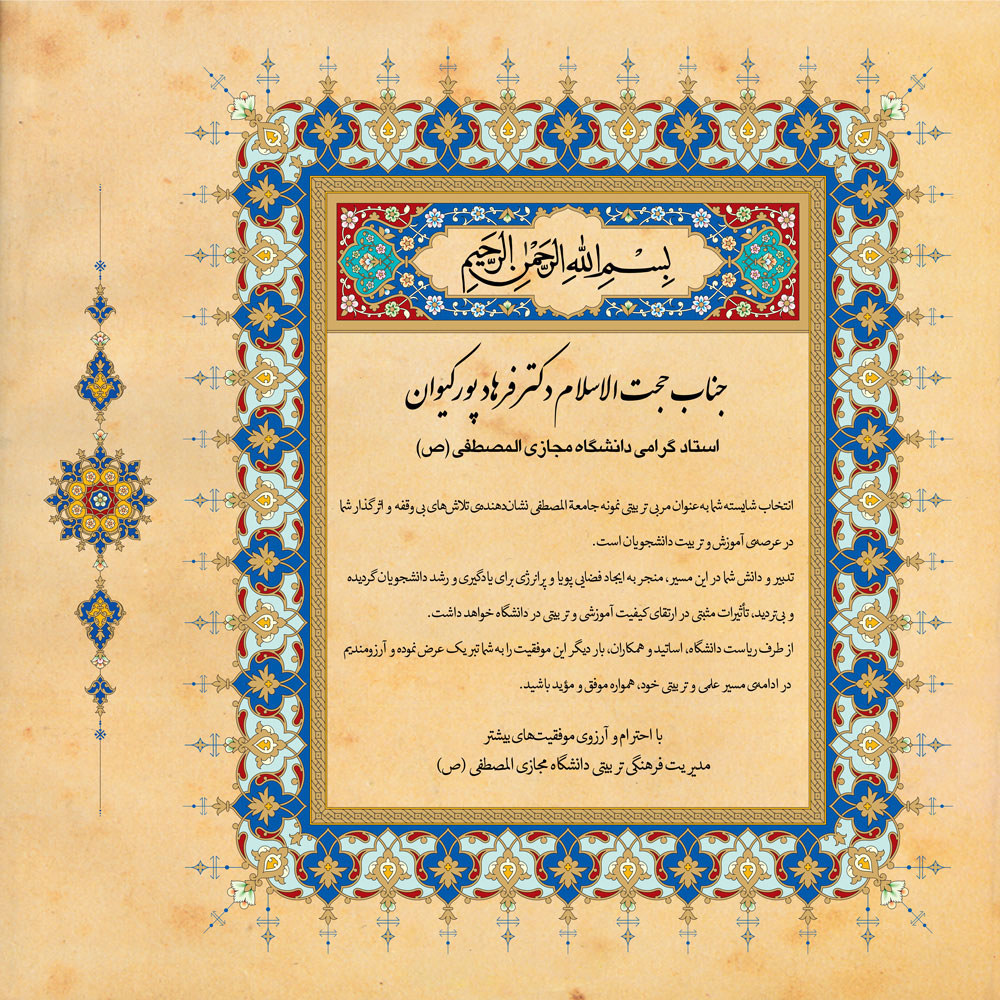 بِسْمِ اللهِ الرَّحْمٰنِ الرَّحِيمِ
جناب حجت الاسلام دکتر فرهاد پورکیوان
استاد گرامی دانشگاه مجازی المصطفی (ص)
انتخاب شایسته شما به عنوان مربی تربیتی نمونه جامعة المصطفی نشان‌دهنده‌ی تلاش‌های بی وقفه و اثرگذار شما
در عرصه‌ی آموزش و تربیت دانشجویان است.
تدبیر و دانش شما در این مسیر، منجر به ایجاد فضایی پویا و پرانرژی برای یادگیری و رشد دانشجویان گردیده
و بی‌تردید، تأثیرات مثبتی در ارتقای کیفیت آموزشی و تربیتی در دانشگاه خواهد داشت.
از طرف ریاست دانشگاه، اساتید و همکاران، بار دیگر این موفقیت را به شما تبریک عرض نموده و آرزومندیم
در ادامه‌ی مسیر علمی و تربیتی خود، همواره موفق و مؤید باشید.
با احترام و آرزوی موفقیت‌های بیشتر
مدیریت فرهنگی تربیتی دانشگاه مجازی المصطفی (ص)